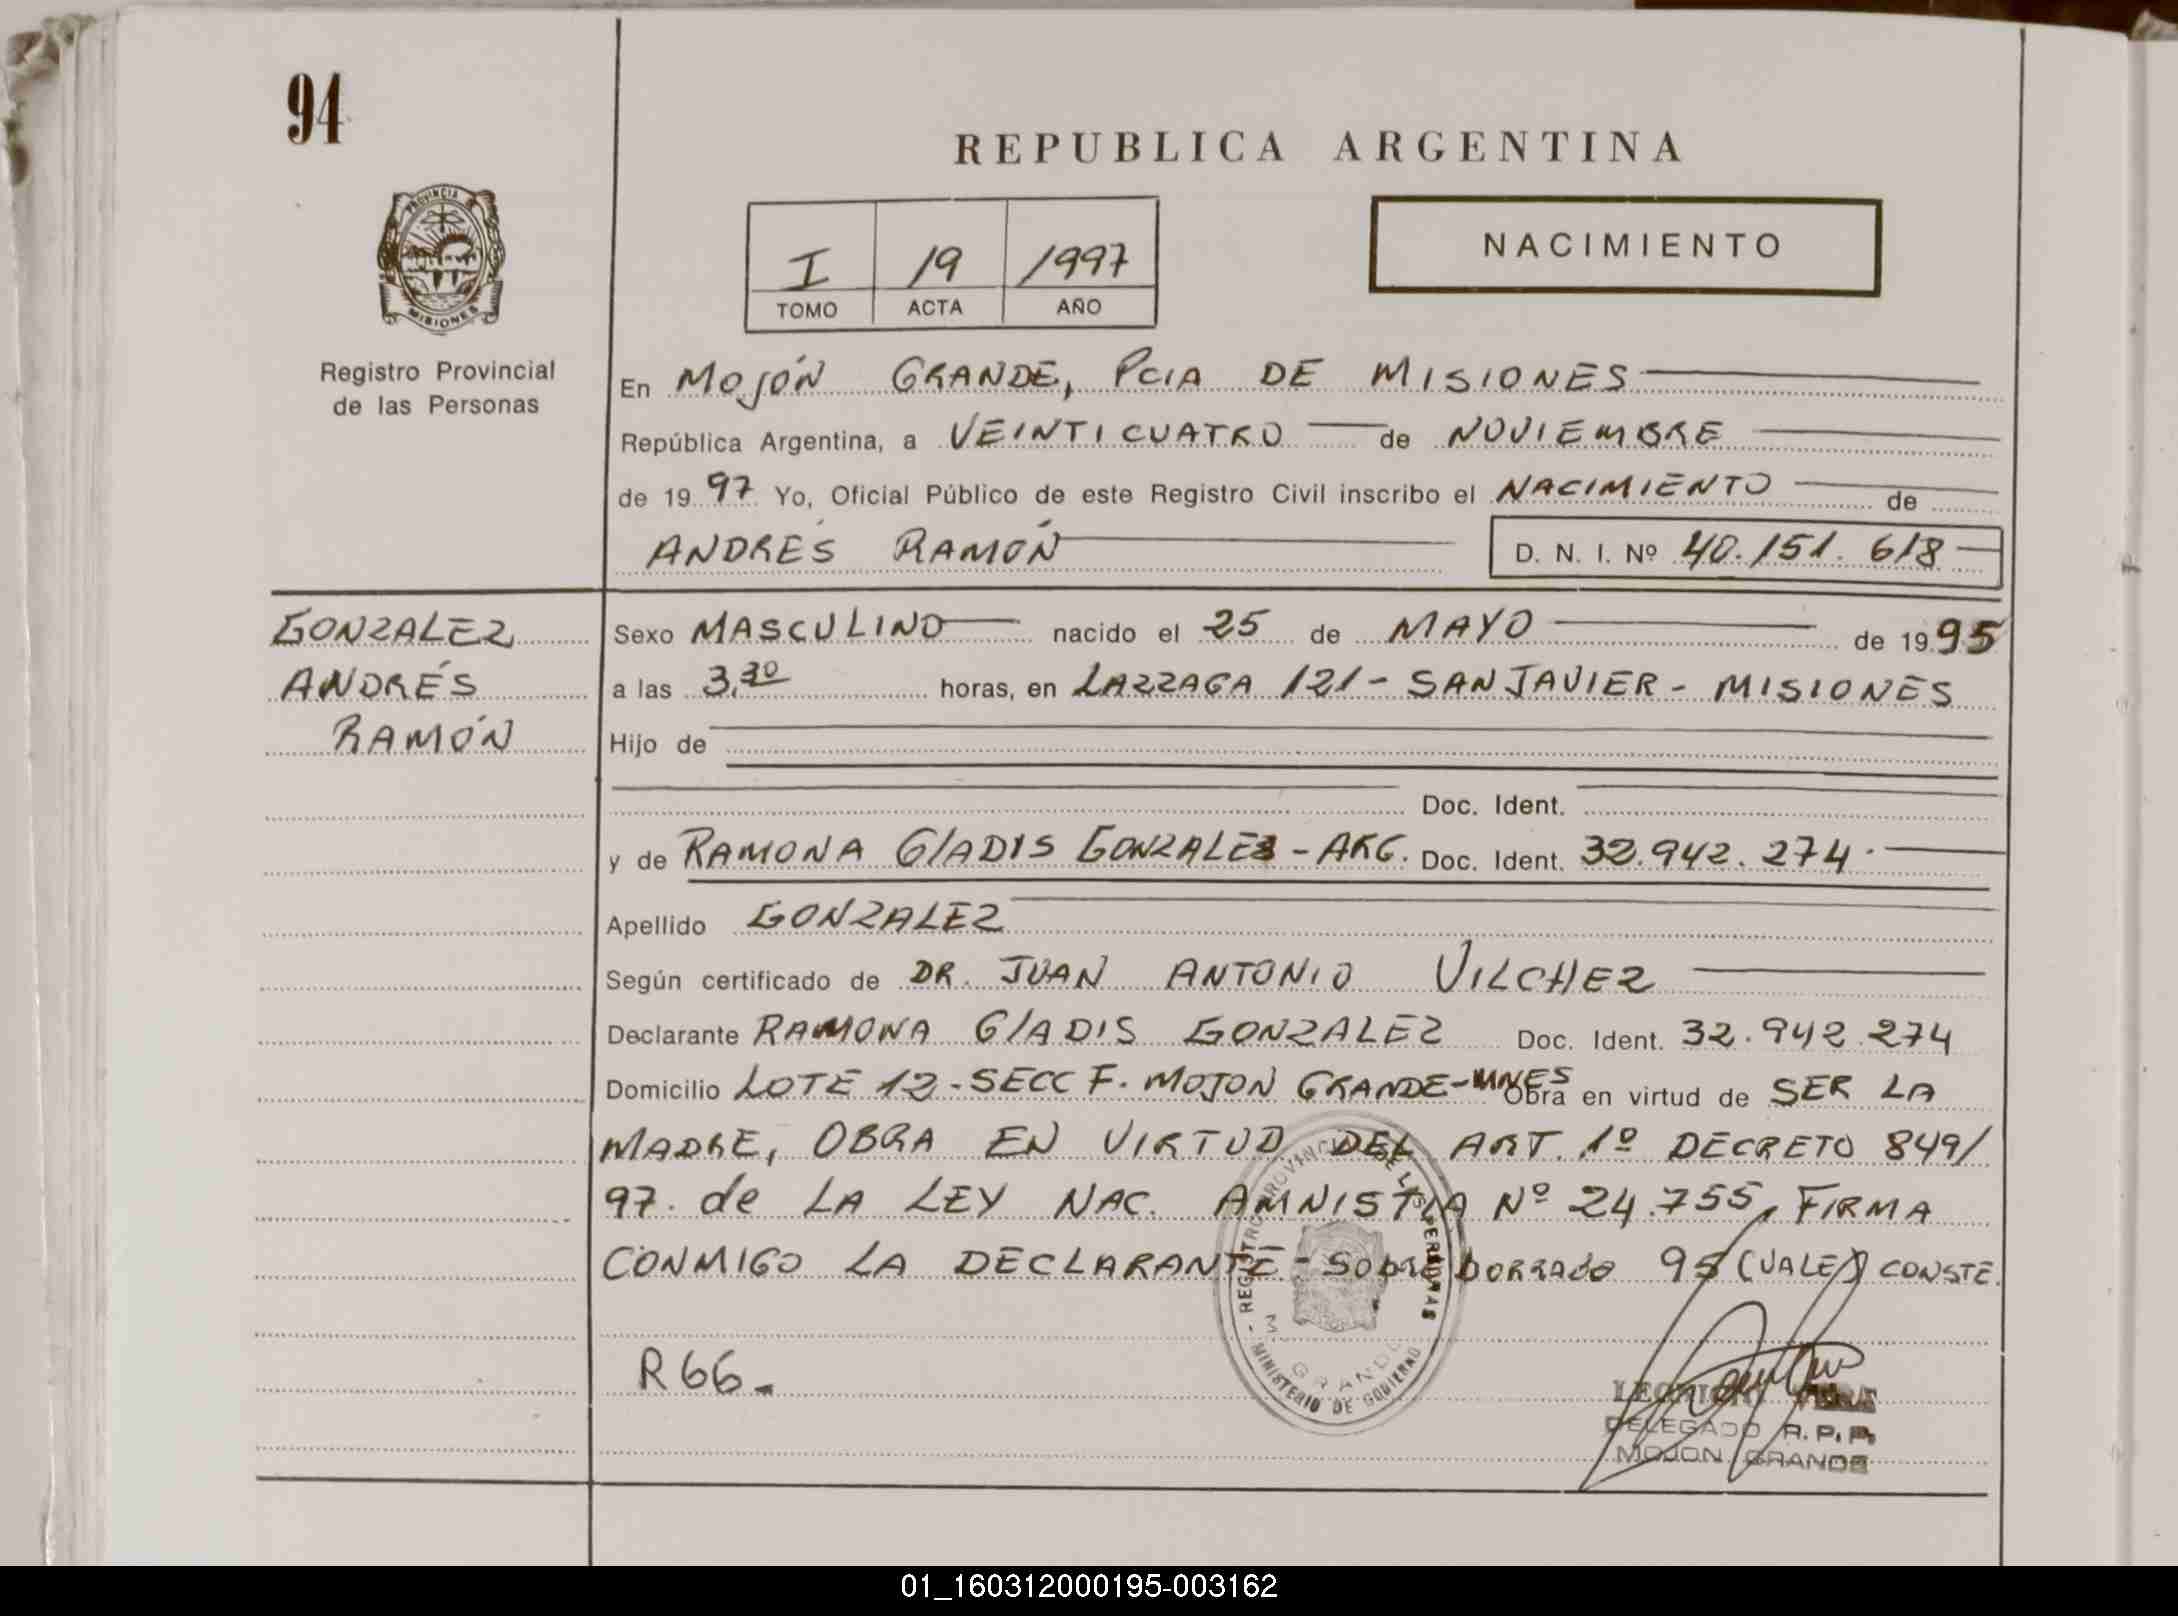 94
REPUBLICA ARGENTINA
PROVINCIA
MISIONES
I 19 1997
TOMO ACTA AÑO
NACIMIENTO
Registro Provincial
de las Personas
En MOJÓN GRANDE, PCIA DE MISIONES
República Argentina, a VEINTICUATRO de NOVIEMBRE
de 1997 Yo, Oficial Público de este Registro Civil inscribo el NACIMIENTO de
ANDRÉS RAMÓN D. N. I. Nº 40.151.618
GONZALEZ
ANDRÉS
RAMÓN
Sexo MASCULINO nacido el 25 de MAYO de 1995
a las 3,30 horas, en LAZZAGA 121 - SAN JAVIER - MISIONES
Hijo de
Doc. Ident.
y de RAMONA GLADYS GONZALEZ - ARG. Doc. Ident. 32.942.274.
Apellido GONZALEZ
Según certificado de DR. JUAN ANTONIO VILCHEZ
Declarante RAMONA GLADIS GONZALEZ Doc. Ident. 32.942.274
Domicilio LOTE 12 - SECC F. MOJON GRANDE - MNES Obra en virtud de SER LA
MADRE, OBRA EN VIRTUD DEL ART. 1º DECRETO 849/
97. de LA LEY NAC. AMNISTIA Nº 24.755, FIRMA
CONMIGO LA DECLARANTE - Sobre borrado 95 (VALE) CONSTE.
REGISTRO PROVINCIAL DE LAS PERSONAS
M. GRANDE
MINISTERIO DE GOBIERNO
R66.
DELEGADO R.P.P.
MOJON GRANDE
01_160312000195-003162